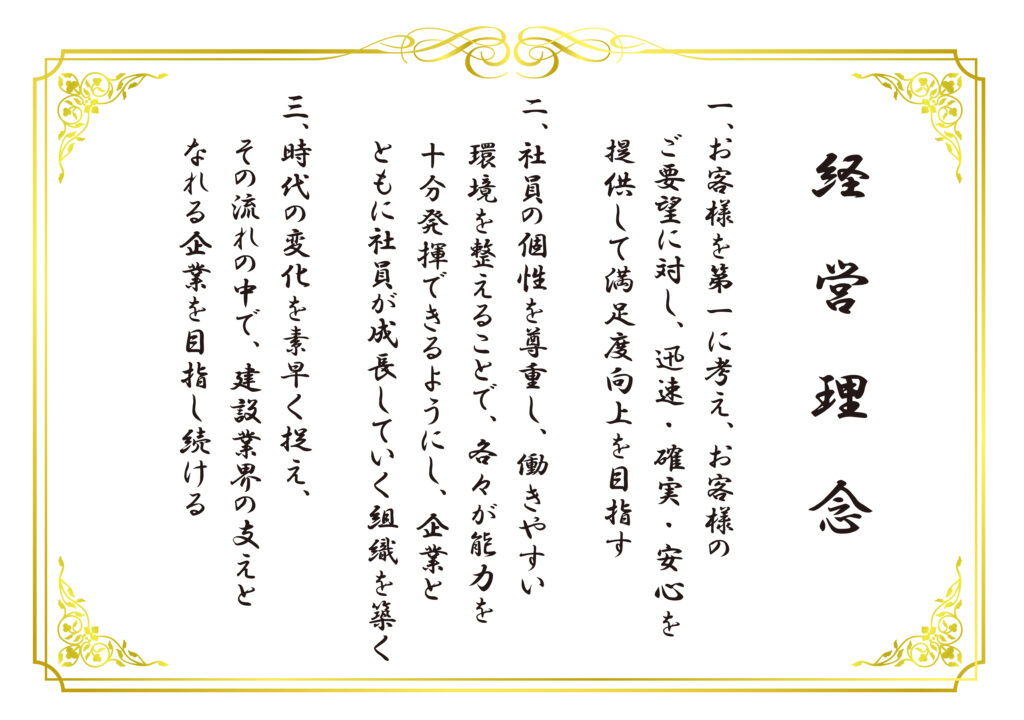 経営理念
一、お客様を第一に考え、お客様の
ご要望に対し、迅速・確実・安心を
提供して満足度向上を目指す
二、社員の個性を尊重し、働きやすい
環境を整えることで、各々が能力を
十分発揮できるようにし、企業と
ともに社員が成長していく組織を築く
三、時代の変化を素早く捉え、
その流れの中で、建設業界の支えと
なれる企業を目指し続ける